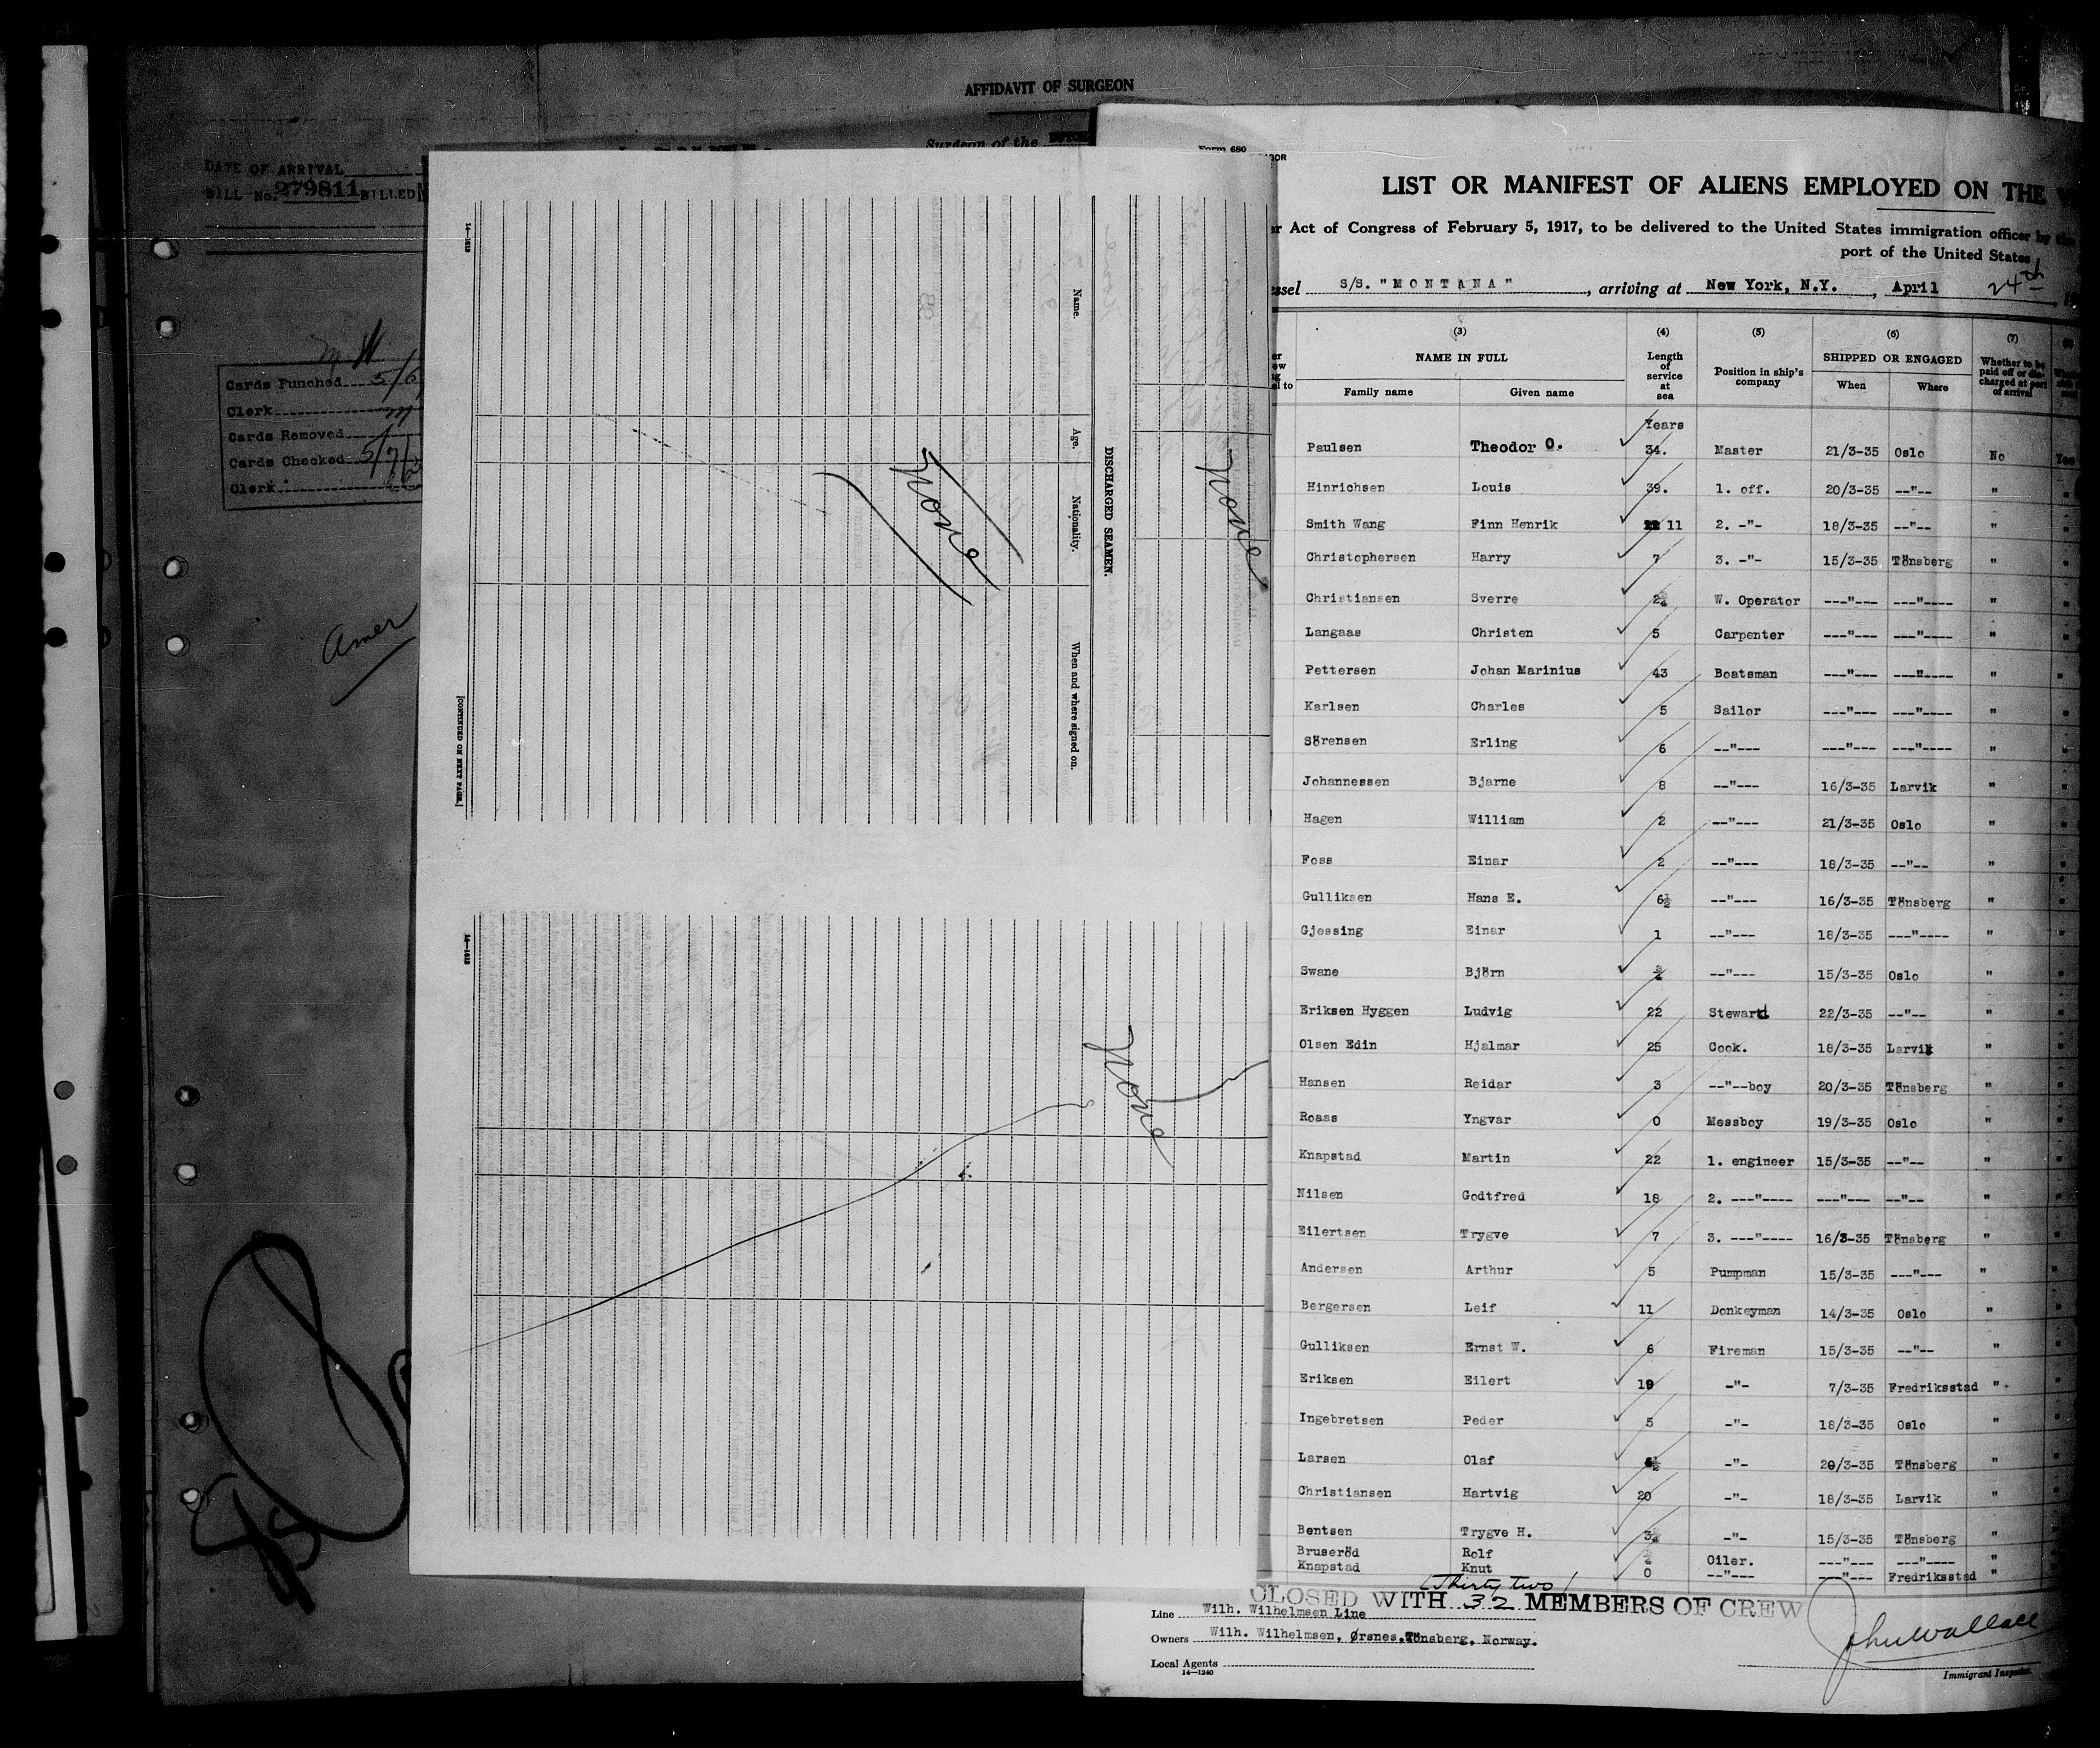 AFFIDAVIT OF SURGEON
Surgeon of the
DATE OF ARRIVAL
BILL No. 279811 BILLED
Cards Punched 5/6
Clerk m
Cards Removed
Cards Checked 5/7/
Clerk
Amer
14—1613
Name.
Age.
Nationality.
When and where signed on.
DISCHARGED SEAMEN.
None
None
[CONTINUED ON NEXT PAGE.]
14—1613
None
Form 680
LIST OR MANIFEST OF ALIENS EMPLOYED ON THE
Act of Congress of February 5, 1917, to be delivered to the United States immigration officer by the
port of the United States
ssel S/S. "MONTANA", arriving at New York, N.Y., April 24th, 19
(3) (4) (5) (6) (7) (8)
NAME IN FULL Length of service at sea Position in ship's company SHIPPED OR ENGAGED Whether to be paid off or discharged at port of arrival
Family name Given name When Where
Years
Paulsen Theodor O. 34. Master 21/3-35 Oslo No Yes
Hinrichsen Louis 39. 1. off. 20/3-35 --"-- "
Smith Wang Finn Henrik 11 2. -"- 18/3-35 --"-- "
Christophersen Harry 7 3. -"- 15/3-35 Tönsberg "
Christiansen Sverre W. Operator ---"--- ---"---- "
Langaas Christen 5 Carpenter ---"--- ---"---- "
Pettersen Johan Marinius 43 Boatsman ---"--- ---"---- "
Karlsen Charles 5 Sailor ---"--- ---"---- "
Sörensen Erling 6 --"--- ---"--- ---"---- "
Johannessen Bjarne 8 --"--- 16/3-35 Larvik "
Hagen William 2 --"--- 21/3-35 Oslo "
Foss Einar 2 --"--- 18/3-35 --"-- "
Gulliksen Hans E. 6½ --"--- 16/3-35 Tönsberg "
Gjessing Einar 1 --"--- 18/3-35 ---"---- "
Swane Björn --"--- 15/3-35 Oslo "
Eriksen Hyggen Ludvig 22 Steward 22/3-35 --"-- "
Olsen Edin Hjalmar 25 Cook. 18/3-35 Larvik "
Hansen Reidar 3 --"--boy 20/3-35 Tönsberg "
Roass Yngvar 0 Messboy 19/3-35 Oslo "
Knapstad Martin 22 1. engineer 15/3-35 --"-- "
Nilsen Godtfred 18 2. ---"---- ---"--- --"-- "
Eilertsen Trygve 7 3. ---"---- 16/3-35 Tönsberg "
Andersen Arthur 5 Pumpman 15/3-35 ---"--- "
Bergersen Leif 11 Donkeyman 14/3-35 Oslo "
Gulliksen Ernst W. 6 Fireman 15/3-35 --"-- "
Eriksen Eilert 19 -"- 7/3-35 Fredriksstad "
Ingebretsen Peder 5 -"- 18/3-35 Oslo "
Larsen Olaf -"- 20/3-35 Tönsberg "
Christiansen Hartvig 20 -"- 18/3-35 Larvik "
Bentsen Trygve H. -"- 15/3-35 Tönsberg "
Bruseröd Rolf Oiler. ---"--- ---"---- "
Knapstad Knut 0 --"--- ---"--- Fredriksstad "
(Thirty two)
CLOSED WITH 32 MEMBERS OF CREW
Line Wilh. Wilhelmsen Line
Owners Wilh. Wilhelmsen, Ørsnes, Tönsberg, Norway.
Local Agents
14—1240
John Wallace
Immigrant Inspector.